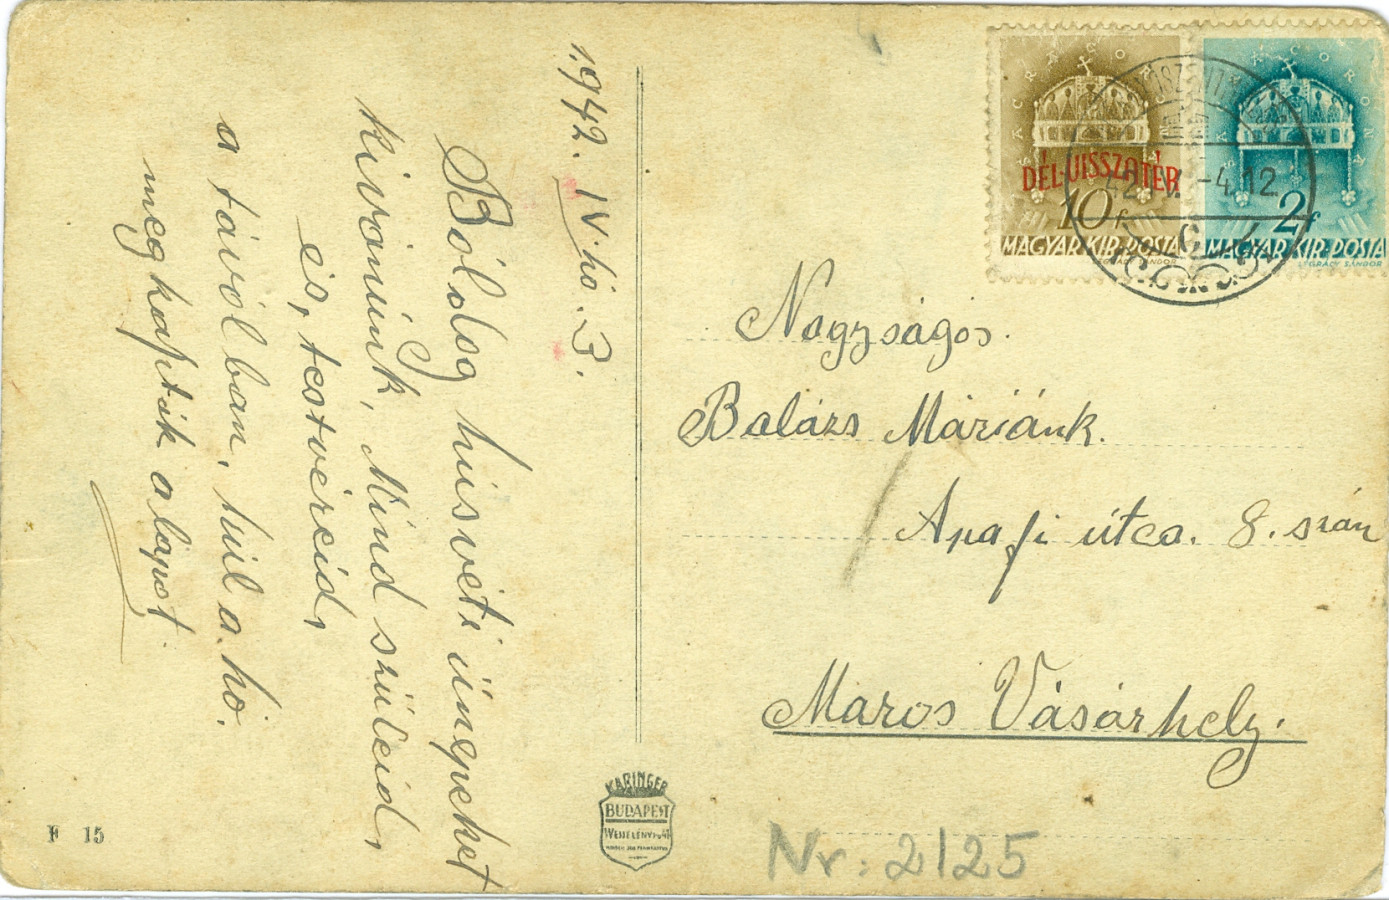 1942. IV. hó. 3.
Bóldog húsvéti ünnepeket
kivánunk, Mind szüleid,
és, testvéreid,
a távólban, túl a. hó.
meg kaptuk a lapot
SACRA CORONA
DÉL-VISSZATÉR
10f
MAGYAR·KIR·POSTA
SACRA CORONA
2f
MAGYAR·KIR·POSTA
LÉGRÁDY SÁNDOR
-4.12
Nagyságos.
Balázs Máriánk.
Apafi útca. 8. szán
Maros Vásárhely.
KARINGER
BUDAPEST
F 15
Nr: 2/25